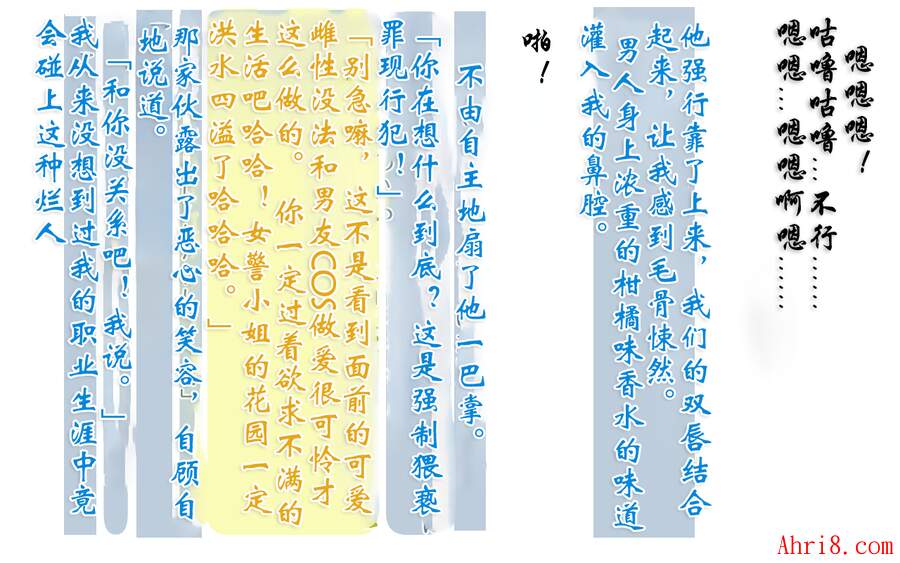 嗯嗯嗯！
咕噜咕噜…不行……
嗯嗯…嗯嗯啊嗯……
他强行靠了上来，我们的双唇结合
起来，让我感到毛骨悚然。
男人身上浓重的柑橘味香水的味道
灌入我的鼻腔。
啪！
不由自主地扇了他一巴掌。
「你在想什么到底？这是强制猥亵
罪现行犯！」。
「别急嘛，这不是看到面前的可爱
雌性没法和男友COS做爱很可怜才
这么做的。你一定过着欲求不满的
生活吧哈哈！女警小姐的花园一定
洪水四溢了哈哈哈。」
那家伙露出了恶心的笑容，自顾自
地说道。
「和你没关系吧！我说。」
我从来没想到过我的职业生涯中竟
会碰上这种烂人
Ahri8.com